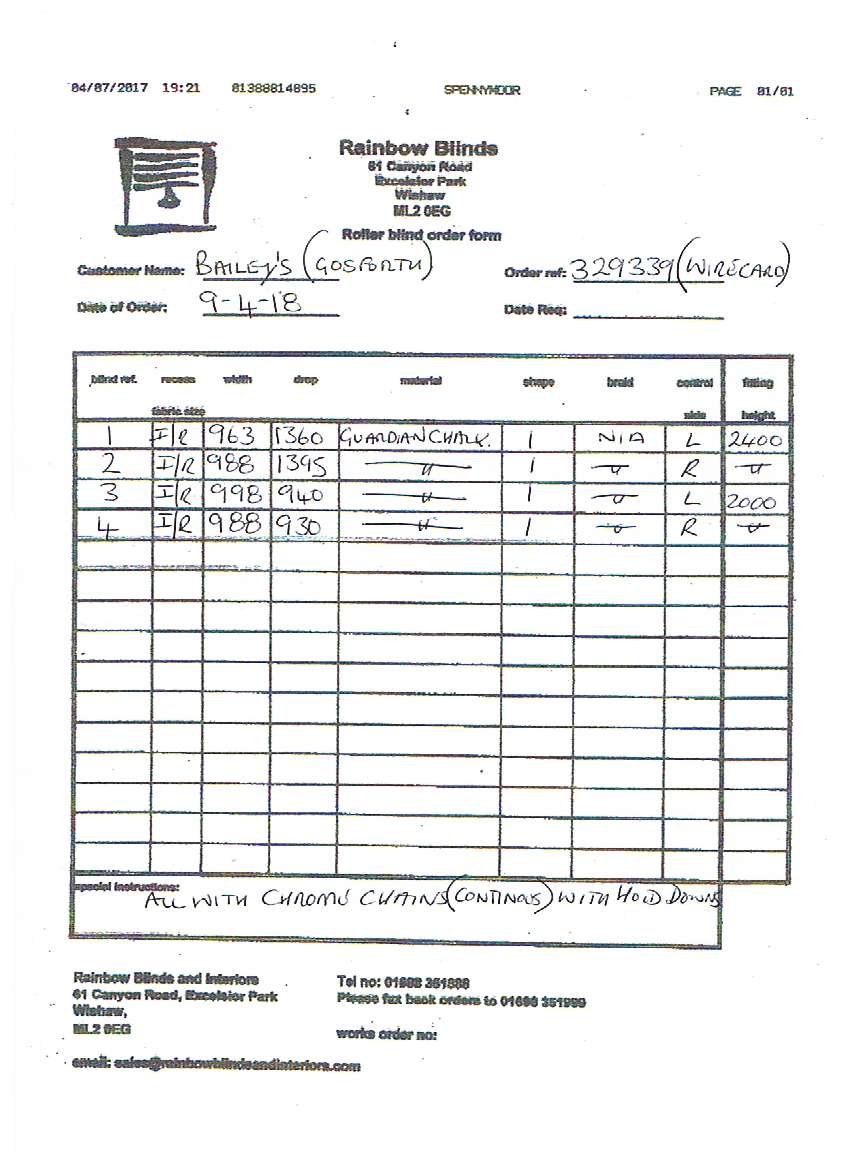 04/07/2017 19:21 01388814895 SPENNYMOOR PAGE 01/01
Rainbow Blinds
61 Canyon Road
Excelsior Park
Wishaw
ML2 0EG
Roller blind order form
Customer Name: BAILEY'S (GOSFORTH) Order ref: 329339 (WIRECARD)
Date of Order: 9-4-18 Date Req:
blind ref. recess width drop material shape braid control fitting
fabric size side height
1 I/R 963 1360 GUARDIAN CHALK. 1 N/A L 2400
2 I/R 988 1395 —〃— 1 —〃— R —〃—
3 I/R 998 940 —〃— 1 —〃— L 2000
4 I/R 988 930 —〃— 1 —〃— R —〃—
special instructions:
ALL WITH CHROME CHAINS (CONTINOUS) WITH HOLD DOWNS
Rainbow Blinds and Interiors Tel no: 01698 351888
61 Canyon Road, Excelsior Park Please fax back orders to 01698 351999
Wishaw,
ML2 0EG works order no:
email: sales@rainbowblindsandinteriors.com